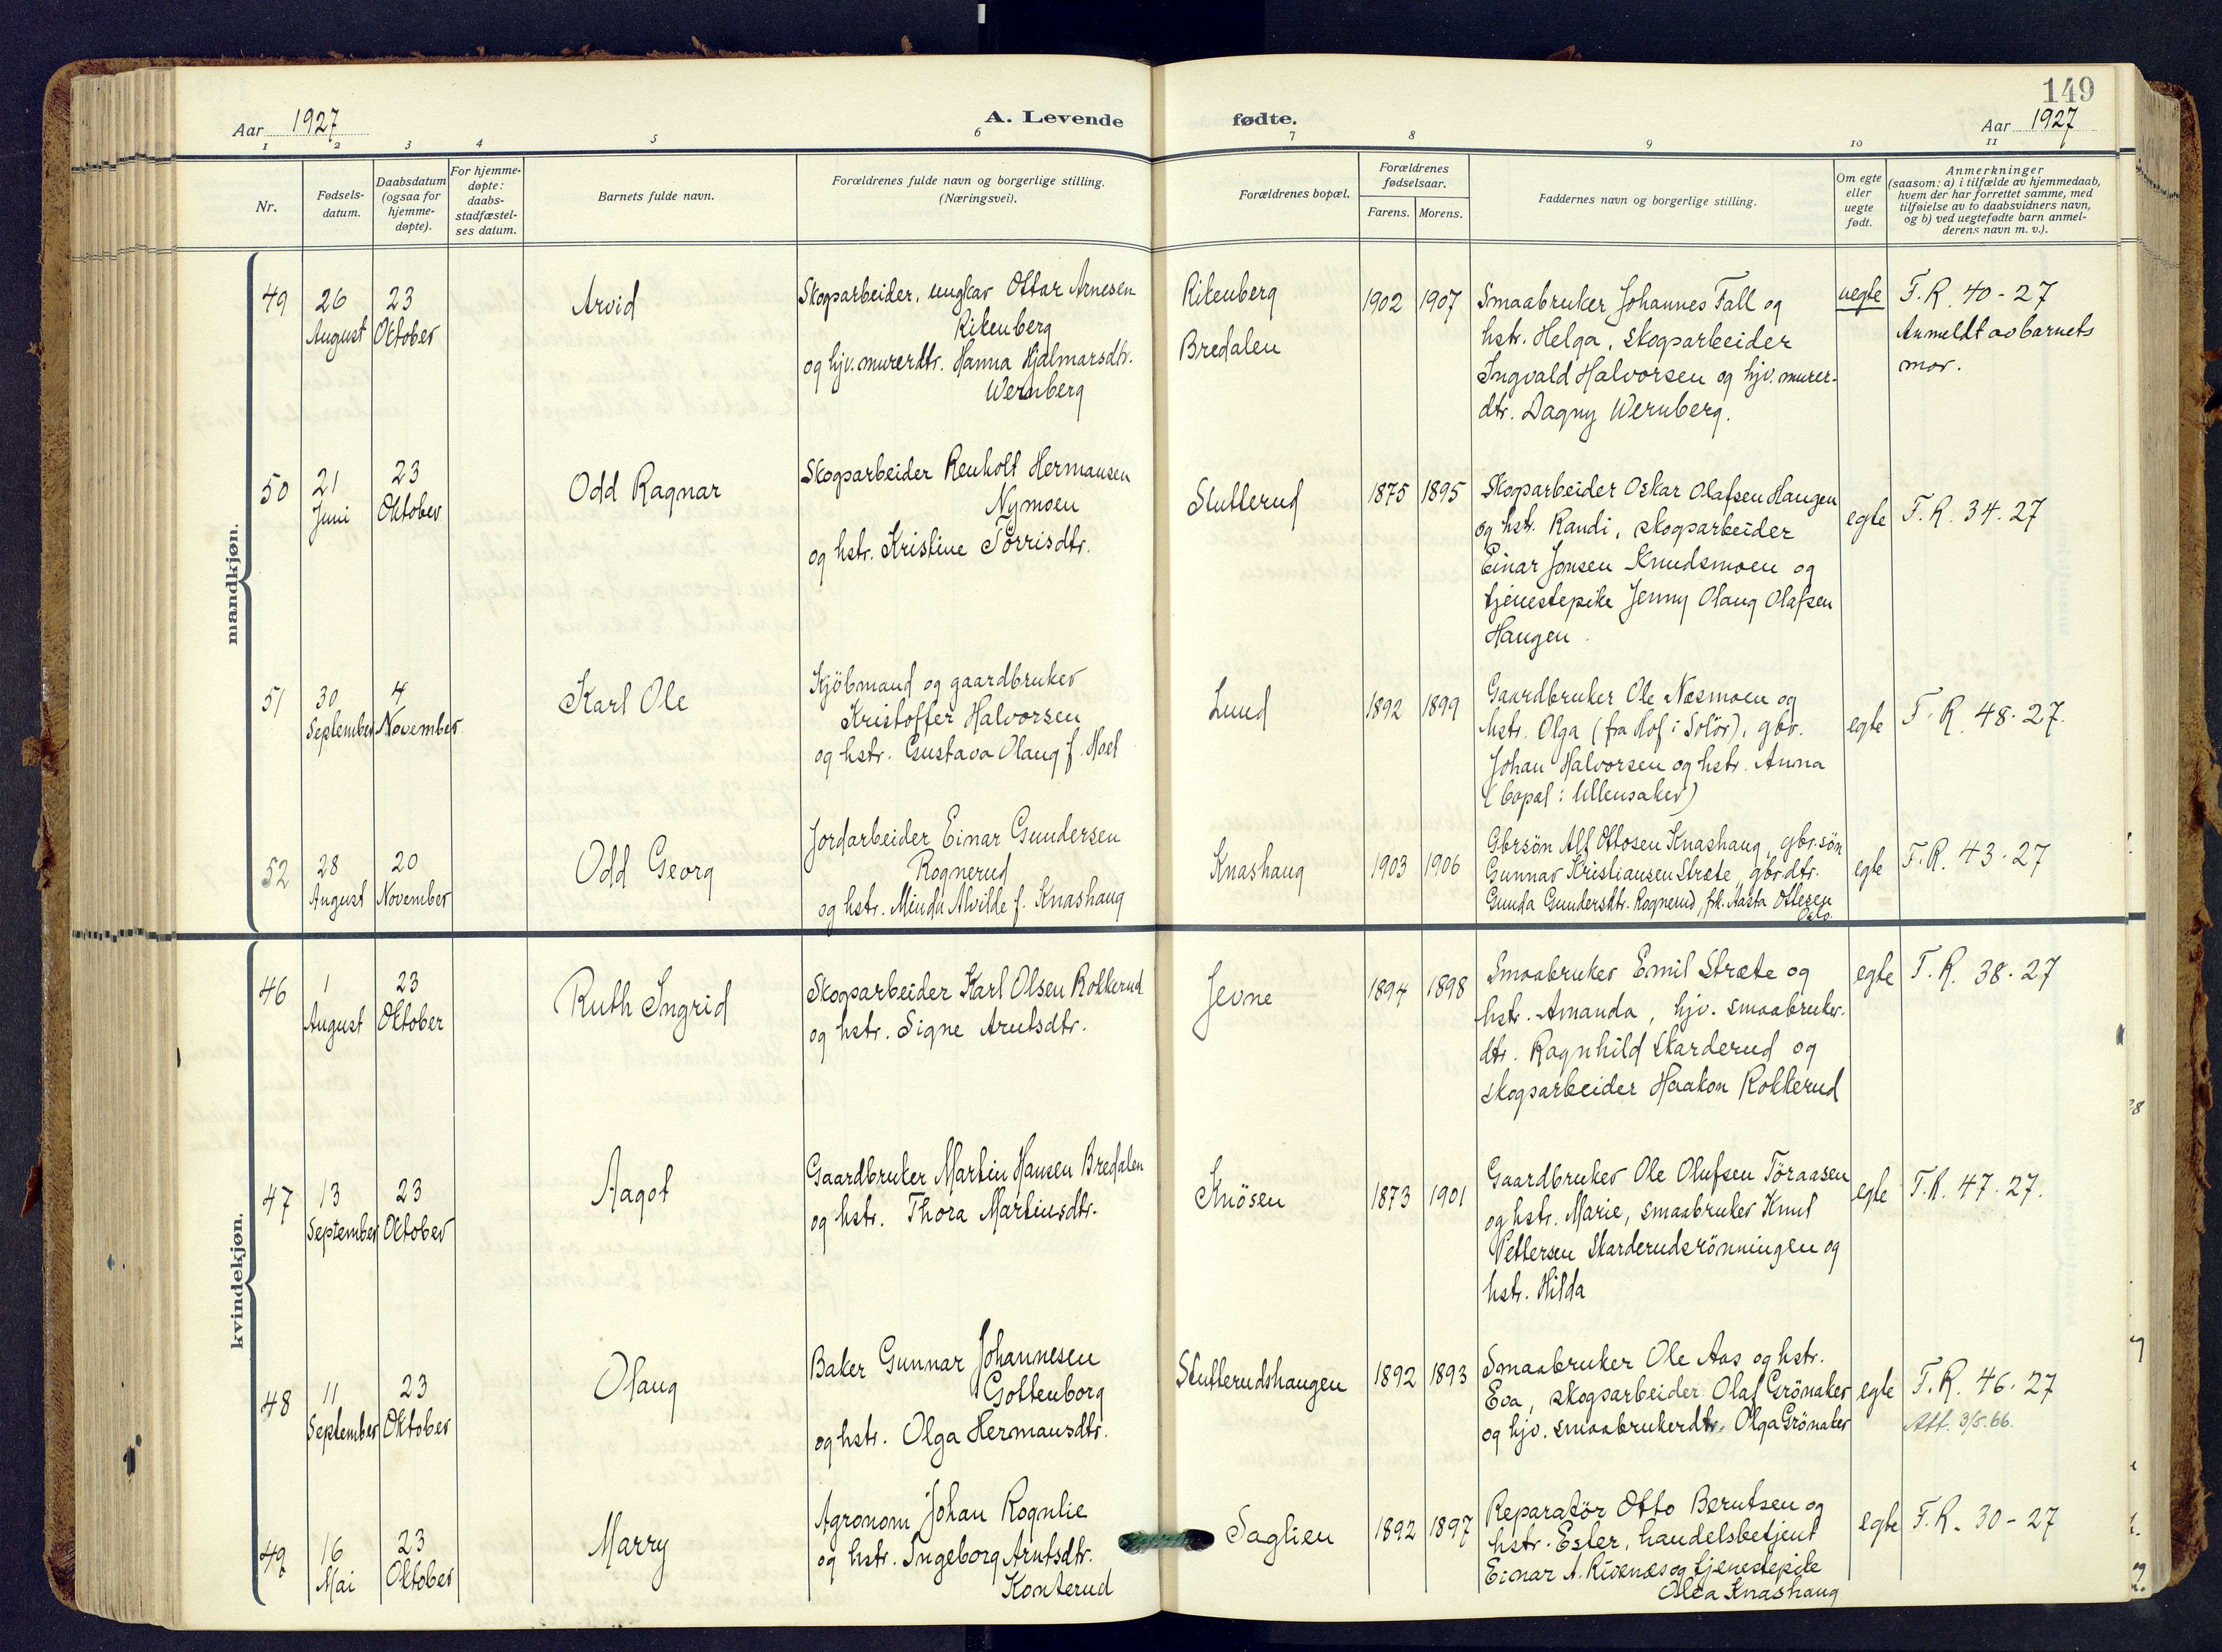 149
Aar 1927
A. Levende fødte.
Aar 1927
1 2 3 4 5 6 7 8 9 10 11
Nr.
Fødsels-
datum.
Daabsdatum
(ogsaa for
hjemme-
døpte).
For hjemme-
døpte:
daabs-
stadfæstel-
ses datum.
Barnets fulde navn.
Forældrenes fulde navn og borgerlige stilling.
(Næringsvei).
Forældrenes bopæl.
Forældrenes
fødselsaar.
Farens. Morens.
Faddernes navn og borgerlige stilling.
Om egte
eller
uegte
født.
Anmerkninger
(saasom: a) i tilfælde av hjemmedaab,
hvem der har forrettet samme, med
tilføielse av to daabsvidners navn,
og b) ved uegtefødte barn anmel-
derens navn m. v.).
mandkjøn.
49
26
August
23
Oktober
Arvid
Skogsarbeider, ungkar Ottar Arnesen
Rikenberg
og hjv. murerdtr. Hanna Hjalmarsdtr.
Wernberg
Rikenberg
Bredalen
1902 1907
Smaabruker Johannes Fall og
hstr. Helga, skogsarbeider
Ingvald Halvorsen og hjv. murer-
dtr. Dagny Wernberg.
uegte
F.R. 40-27
Anmeldt av barnets
mor.
50
21
Juni
23
Oktober
Odd Ragnar
Skogsarbeider Renholt Hermansen
Nymoen
og hstr. Kristine Törrisdtr.
Slutterud
1875 1895
Skogsarbeider Oskar Olafsen Haugen
og hstr. Randi, skogsarbeider
Einar Jonsen Knudsmoen og
tjenestepike Jenny Olaug Olafsen
Haugen.
egte
F.R. 34.27
51
30
September
4
November
Karl Ole
Kjöbmand og gaardbruker
Kristoffer Halvorsen
og hstr. Gustava Olaug f. Hoel
Lund
1892 1899
Gaardbruker Ole Næsmoen og
hstr. Olga (fra Hof i Solör), gbr.
Johan Halvorsen og hstr. Anna
(bopæl: Ullensaker)
egte
F.R. 48.27.
52
28
August
20
November
Odd Georg
Jordarbeider Einar Gundersen
Rognerud
og hstr. Minda Alvilde f. Knashaug
Knashaug
1903 1906
Gbrsön Alf Ottosen Knashaug, gbr.sön
Gunnar Kristiansen Stræte, gbr.dtr.
Gunda Gundersdtr. Rognerud, frk. Aasta Ottesen
Oslo.
egte
F.R. 43-27
kvindekjøn.
46
1
August
23
Oktober
Ruth Ingrid
Skogsarbeider Karl Olsen Rokkerud
og hstr. Signe Arntsdtr.
Jevne
1894 1898
Smaabruker Emil Stræte og
hstr. Amanda, hjv. smaabruker-
dtr. Ragnhild Skarderud og
skogsarbeider Haakon Rokkerud
egte
F.R. 38-27
47
13
September
23
Oktober
Aagot
Gaardbruker Martin Hansen Bredalen
og hstr. Thora Martinsdtr.
Knösen
1873 1901
Gaardbruker Ole Olufsen Töraasen
og hstr. Marie, smaabruker Knut
Pettersen Skarderudsrönningen og
hstr. Hilda
egte
F.R. 47-27.
48
11
September
23
Oktober
Olaug
Baker Gunnar Johannesen
Gottenborg
og hstr. Olga Hermansdtr.
Slutterudshaugen
1892 1893
Smaabruker Ole Aas og hstr.
Eva, skogsarbeider Olaf Grönaker
og hjv. smaabrukerdtr. Olga Grönaker
egte
F.R. 46-27
Att. 3/5.66.
49
16
Mai
23
Oktober
Marry
Agronom Johan Rognlie
og hstr. Ingeborg Arntsdtr.
Konterud
Saglien
1892 1897
Reparatör Otto Berntsen og
hstr. Ester, handelsbetjent
Einar A. Rivenæs og tjenestepike
Olea Knashaug
egte
F.R. 30-27